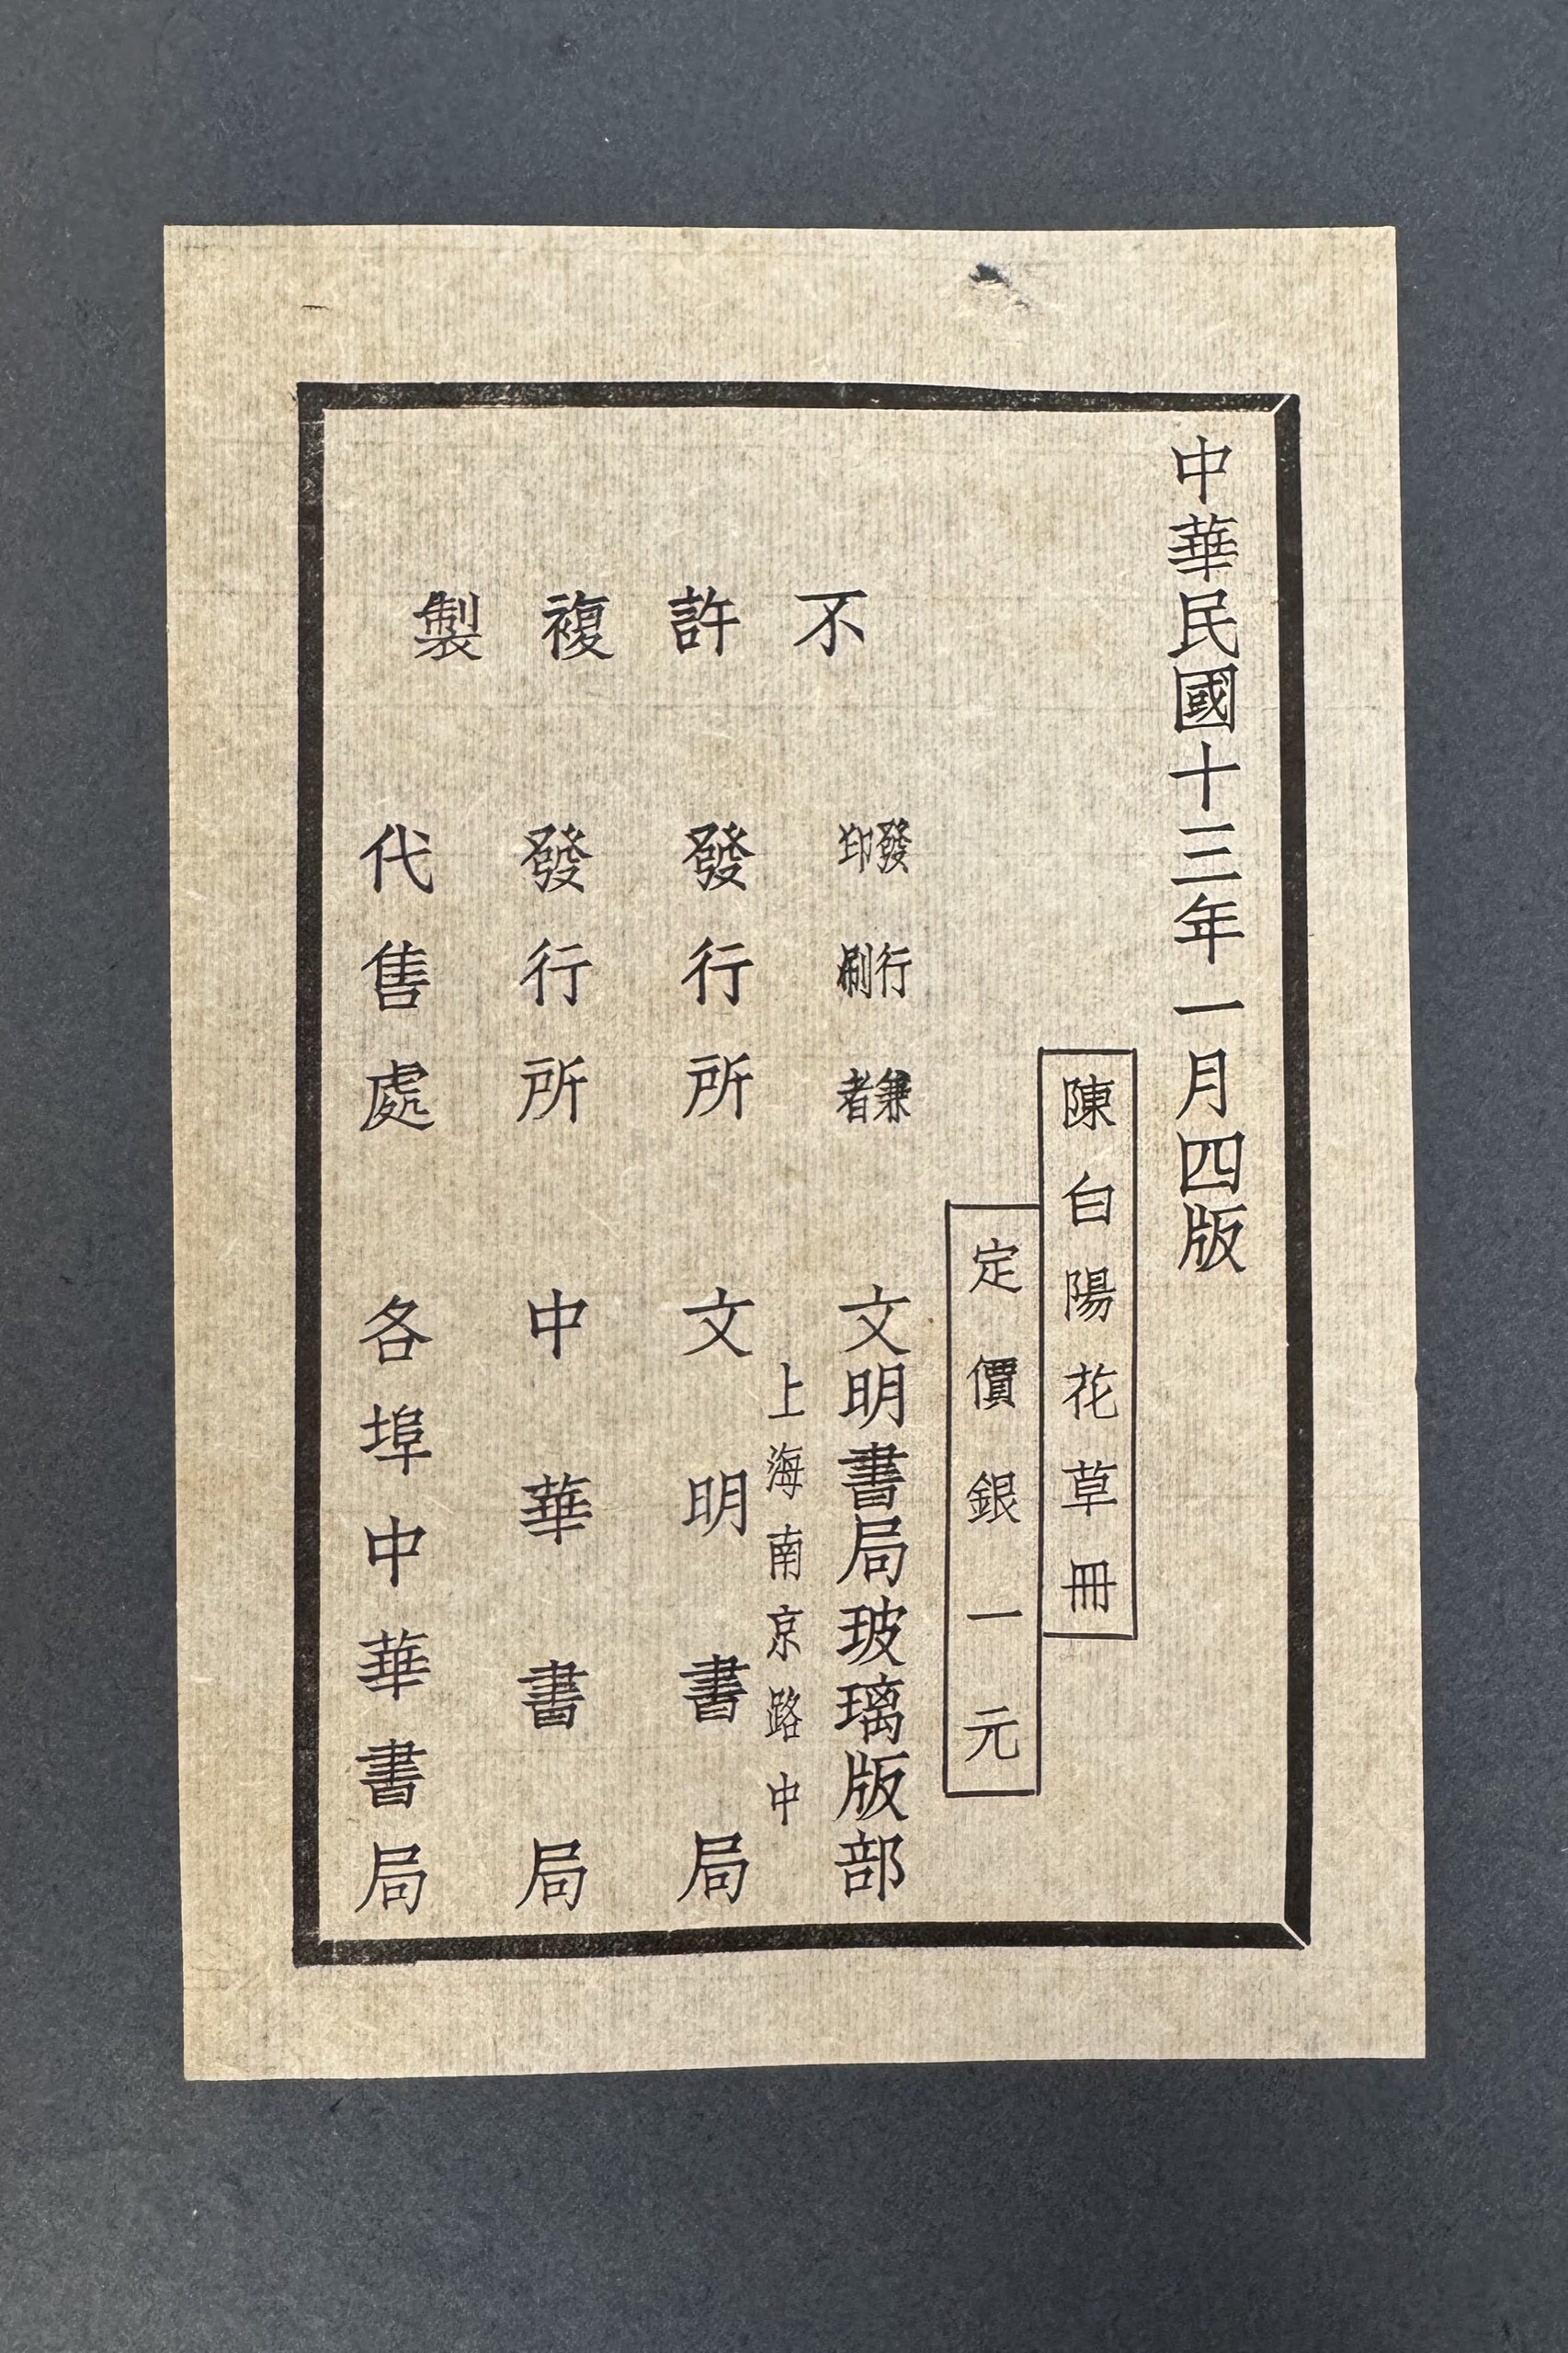 中華民國十三年一月四版
陳白陽花草冊
定價銀一元
不許複製
發行兼
印刷者
文明書局玻璃版部
上海南京路中
發行所 文明書局
發行所 中華書局
代售處 各埠中華書局